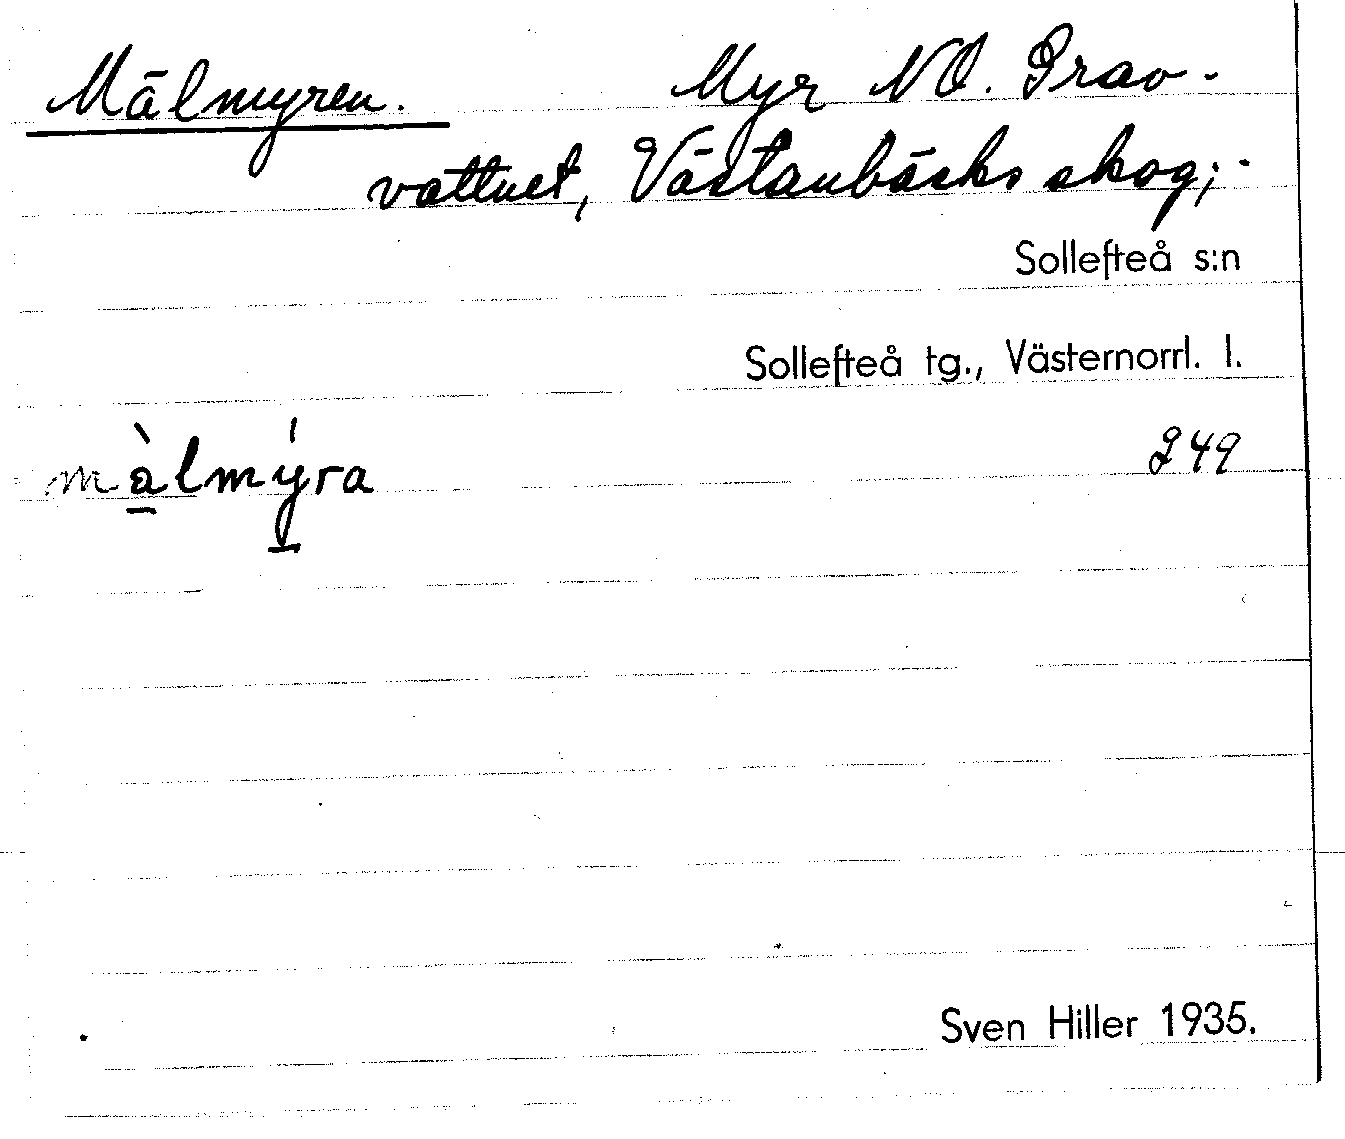 Mälmyren. Myr NO. Grav-
vattnet, Västanbäcks skog;-
Sollefteå s:n
Sollefteå tg., Västernorrl. l.
màlmýra 249
Sven Hiller 1935.